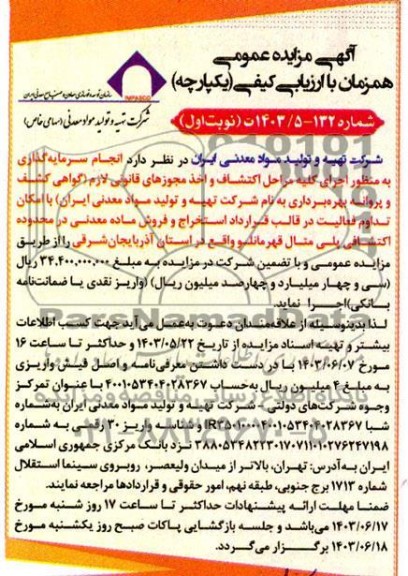 آگهی مزایده عمومی
همزمان با ارزیابی کیفی (یکپارچه)
سازمان توسعه و نوسازی معادن و صنایع معدنی ایران
شرکت تهیه و تولید مواد معدنی (سهامی خاص)
شماره ۱۳۲-۱۴۰۳/۵ت (نوبت اول)
شرکت تهیه و تولید مواد معدنی ایران در نظر دارد انجام سرمایه‌گذاری
به منظور اجرای کلیه مراحل اکتشاف و اخذ مجوزهای قانونی لازم (گواهی کشف
و پروانه بهره‌برداری به نام شرکت تهیه و تولید مواد معدنی ایران) با امکان
تداوم فعالیت در قالب قرارداد استخراج و فروش ماده معدنی در محدوده
اکتشافی پلی متال قهرمانلو واقع در استان آذربایجان‌شرقی را از طریق
مزایده عمومی و با تضمین شرکت در مزایده به مبلغ ۳۴,۴۰۰,۰۰۰,۰۰۰ ریال
(سی و چهار میلیارد و چهارصد میلیون ریال) (واریز نقدی یا ضمانت‌نامه
بانکی) اجرا نماید.
لذا بدینوسیله از علاقه‌مندان دعوت به‌عمل می‌آید جهت کسب اطلاعات
بیشتر و تهیه اسناد مزایده از تاریخ ۱۴۰۳/۰۵/۲۲ و حداکثر تا ساعت ۱۶
مورخ ۱۴۰۳/۰۶/۰۷ با در دست داشتن معرفی‌نامه و اصل فیش واریزی
به مبلغ ۴ میلیون ریال به‌حساب ۴۰۰۱۰۵۳۴۰۴۰۲۸۳۶۷ با عنوان تمرکز
وجوه شرکت‌های دولتی - شرکت تهیه و تولید مواد معدنی ایران به‌شماره
شبا و شناسه واریز ۳۰ رقمی به شماره
نزد بانک مرکزی جمهوری اسلامی
ایران به‌آدرس: تهران، بالاتر از میدان ولیعصر، روبروی سینما استقلال
شماره ۱۷۱۳ برج جنوبی، طبقه نهم، امور حقوقی و قراردادها مراجعه نمایند.
ضمنا مهلت ارائه پیشنهادات حداکثر تا ساعت ۱۷ روز شنبه مورخ
۱۴۰۳/۰۶/۱۷ می‌باشد و جلسه بازگشایی پاکات صبح روز یکشنبه مورخ
۱۴۰۳/۰۶/۱۸ برگزار می‌گردد.
ParsNamadData